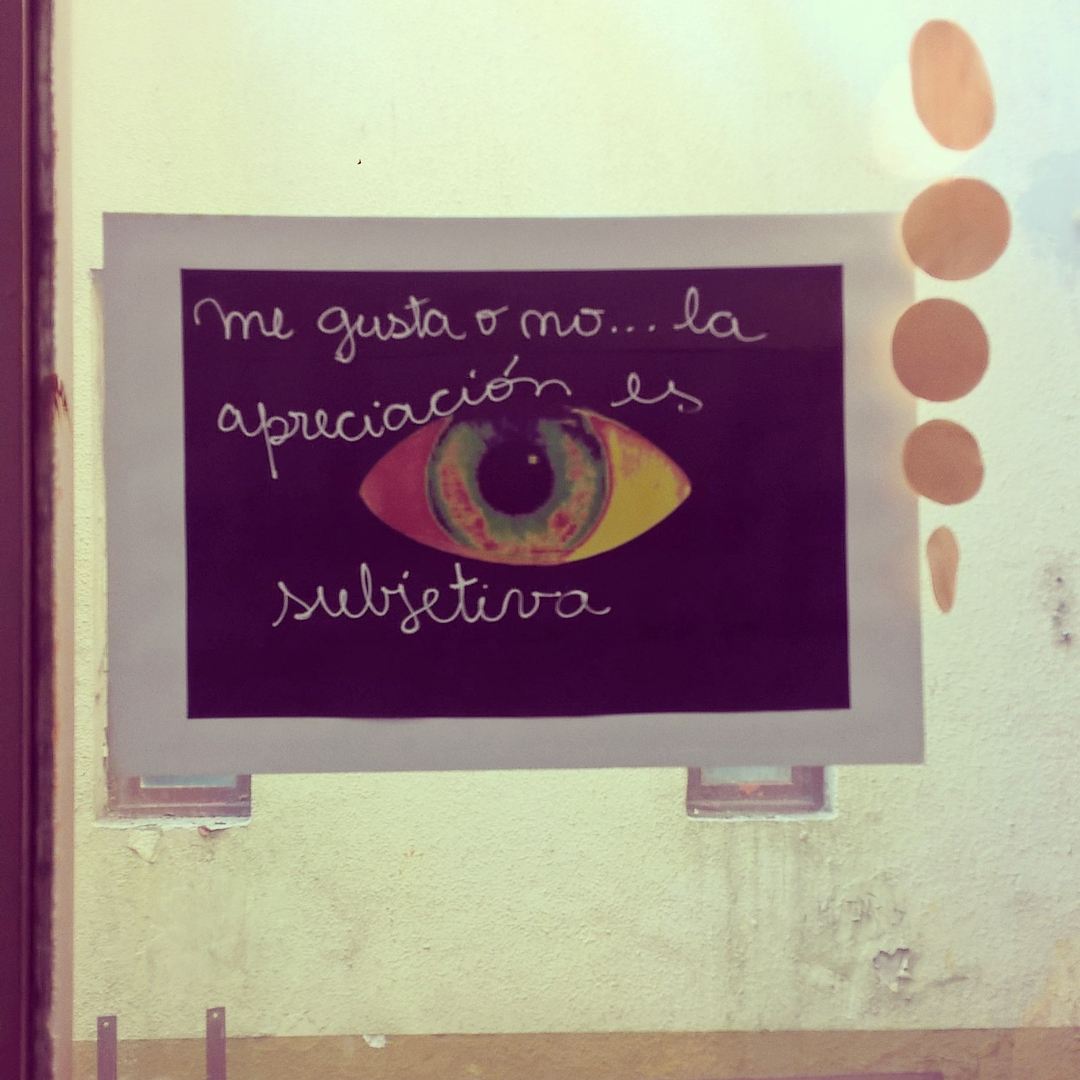 me gusta o no... la
apreciación es
subjetiva